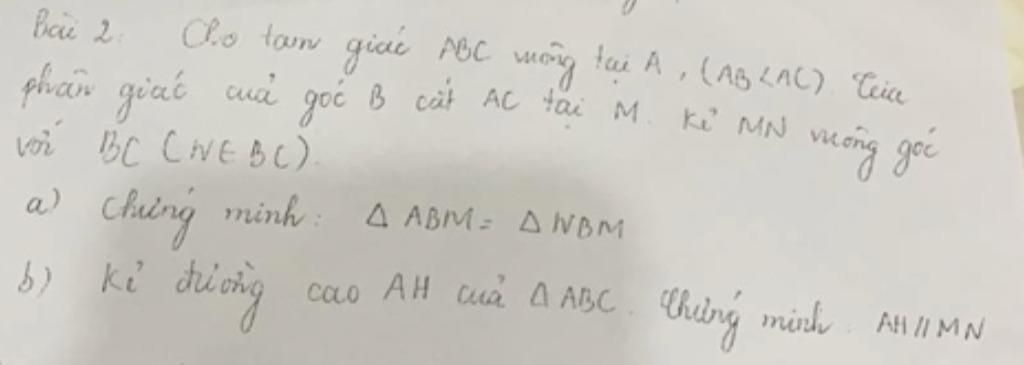 Bài 2: Cho tam giác ABC vuông tại A, (AB < AC). Tia
phân giác của góc B cắt AC tại M. Kẻ MN vuông góc
với BC (N ∈ BC).
a) Chứng minh: Δ ABM = Δ NBM
b) Kẻ đường cao AH của Δ ABC. Chứng minh. AH // MN